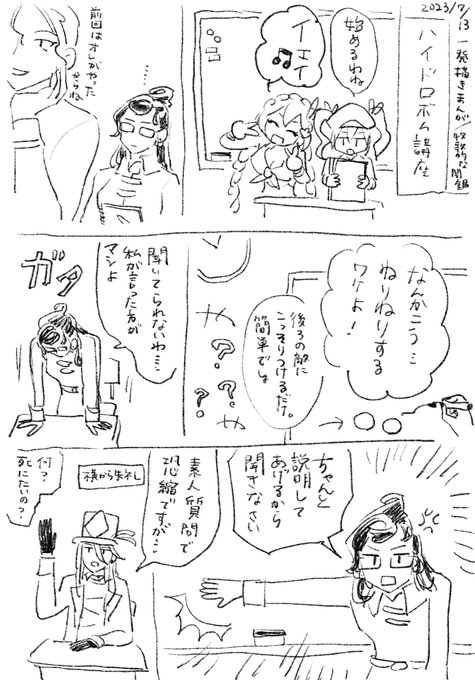 2023/7/13
一発描きまんが/牧歌的な閑話
ハイドロボム講座
始めるわね
イェイ
前回はオレがやった
からね
………
なんかこう…
ねりねりする
ワケよ!
後ろの敵に
こっそりつけるだけ。
簡単でしょ
?
?
?
聞いてられないわ…
私が言った方が
マシよ
ガタ
ちゃんと
説明して
あげるから
聞きなさい
素人質問で
恐縮ですが…
横から失礼
何?
死にたいの?